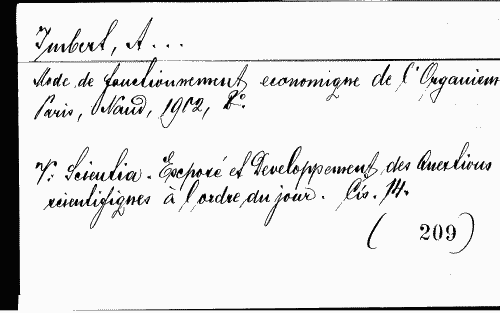 Imbert, A...
Mode de fonctionnement economique de l'Organism
Paris, Naud, 1902, 8°.
V: Scientia. Exposé et Developpement des Questions
scientifiques à l'ordre du jour. Cis. 14.
( 209 )